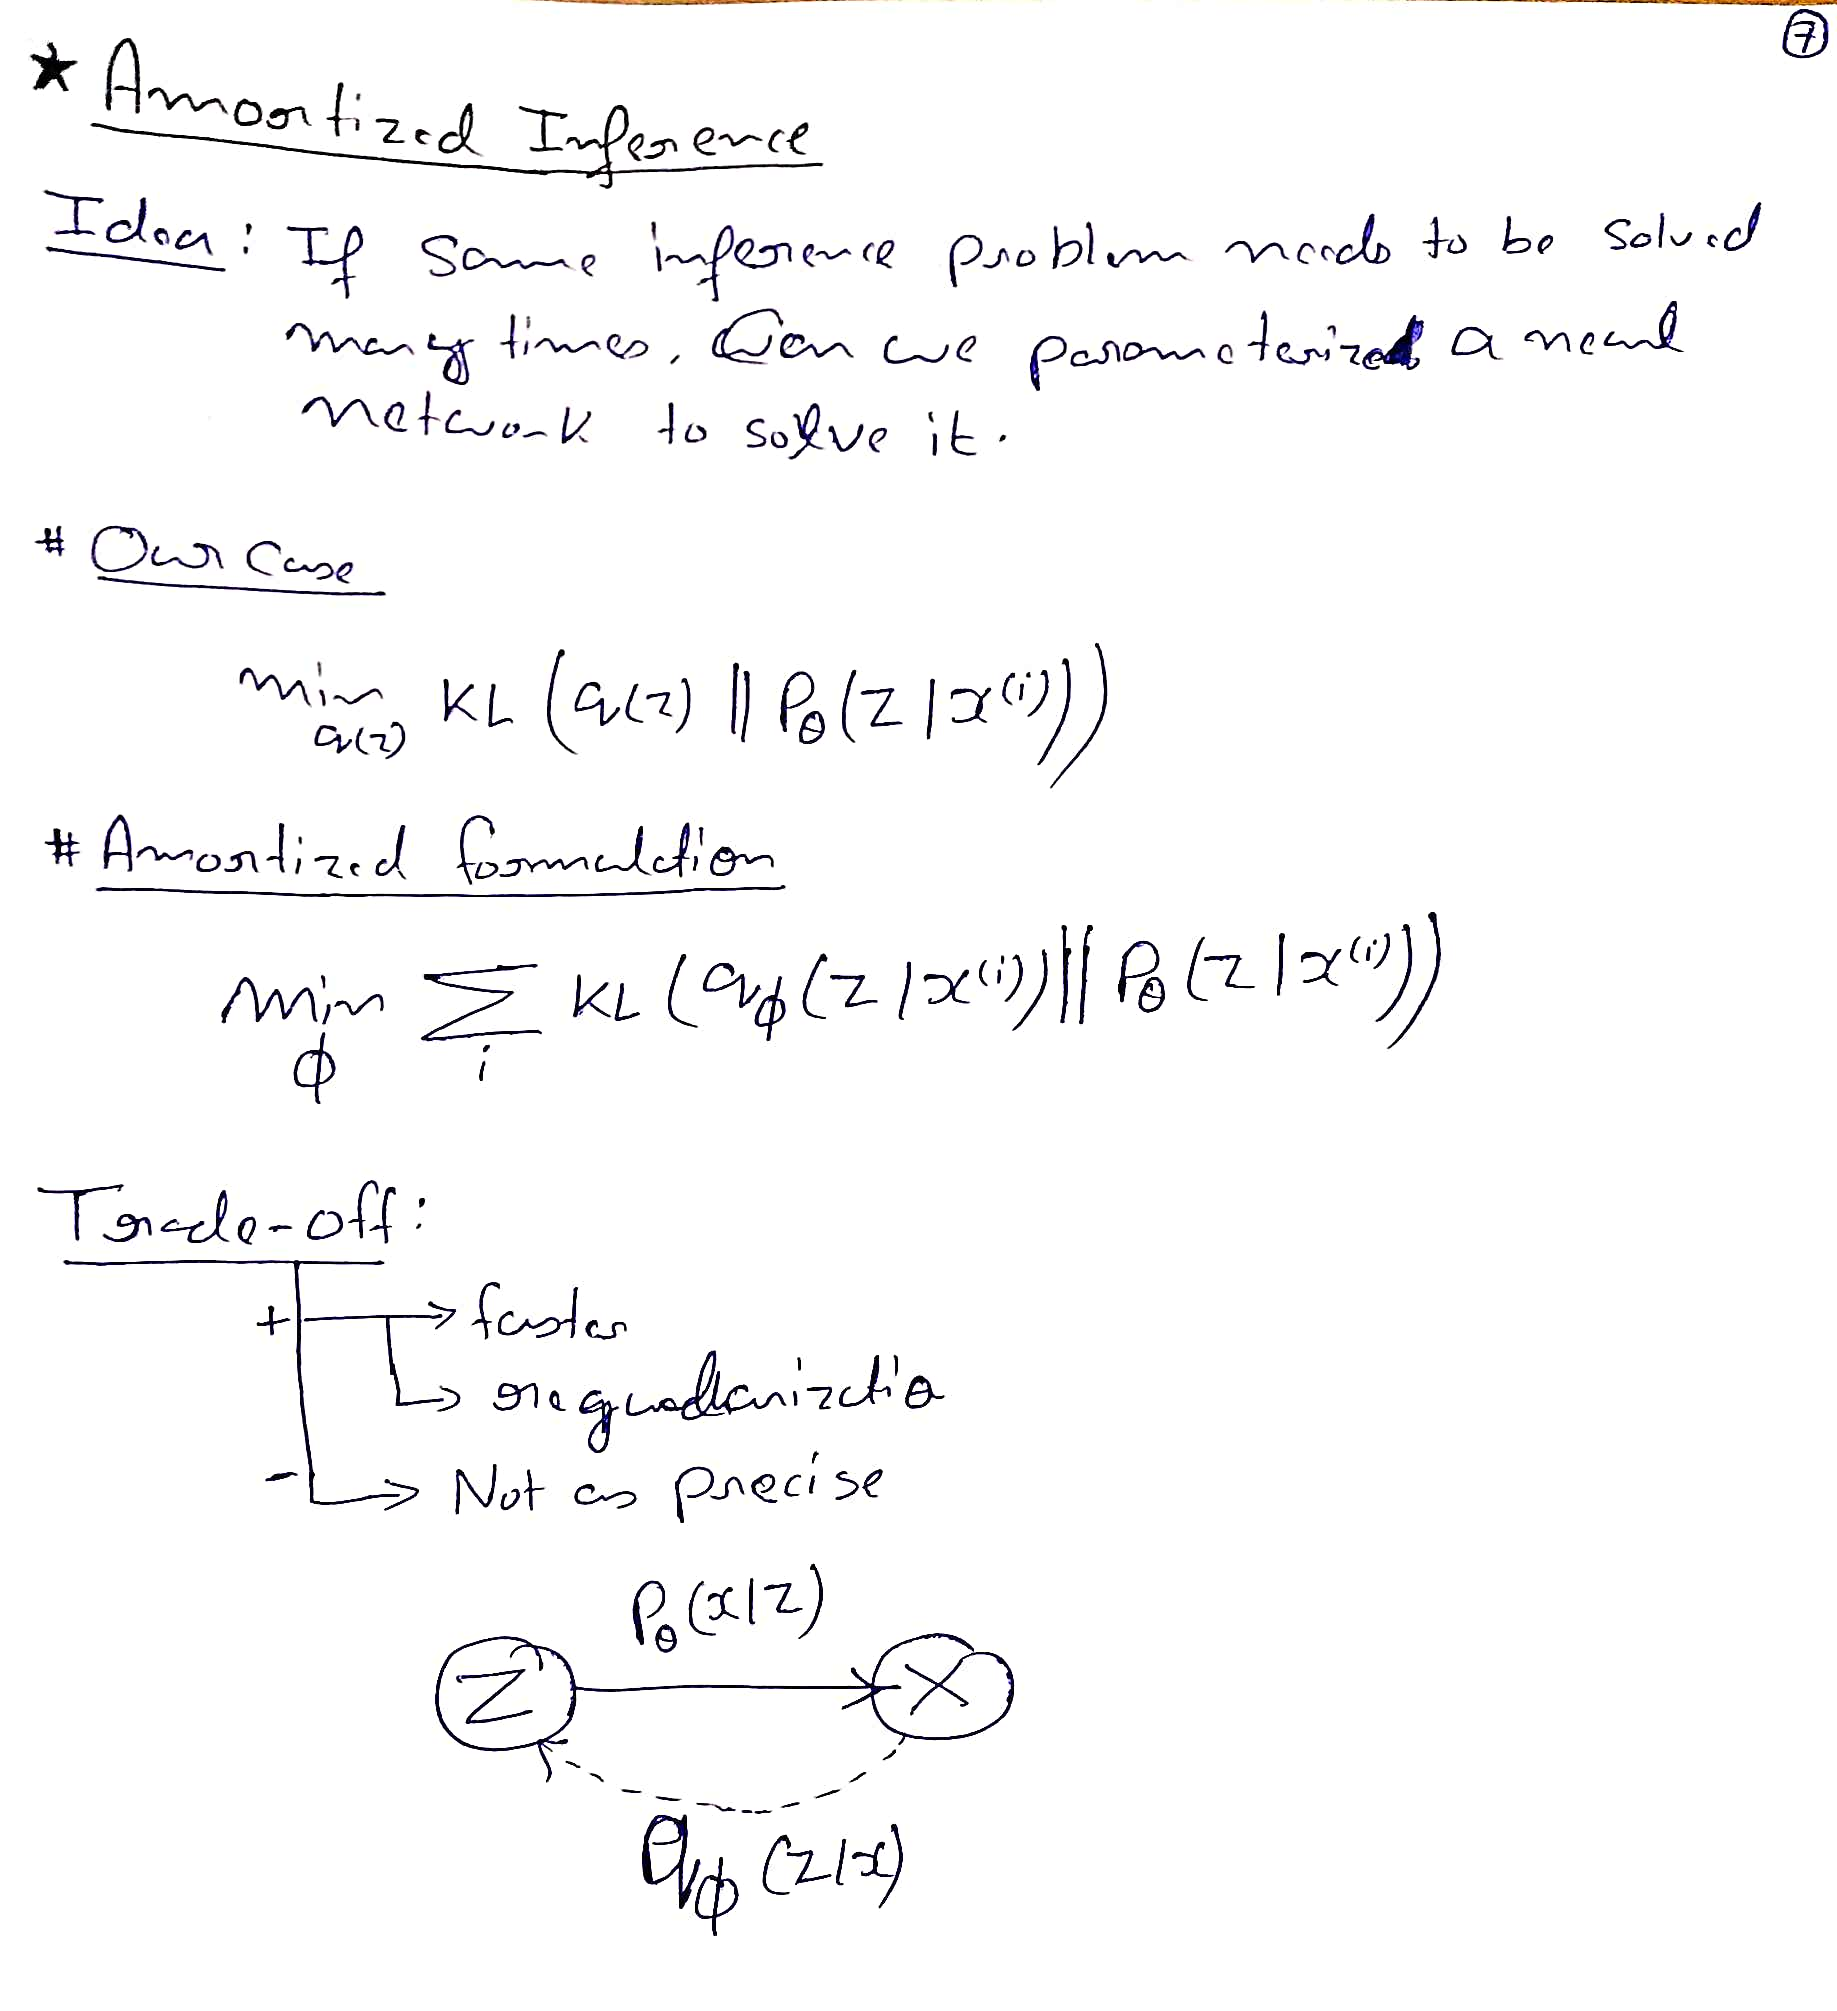 7
★ Amortized Inference
Idea: If same inference problem needs to be solved
many times. Can we parameterized a neural
network to solve it.
# Our Case
min KL (q(z) || Pθ(z|x⁽ⁱ⁾))
q(z)
# Amortized formulation
min Σ KL (qϕ(z|x⁽ⁱ⁾) || Pθ(z|x⁽ⁱ⁾))
ϕ i
Trade-off:
+ → faster
→ regularizatio
- → Not as precise
Pθ(x|z)
Z X
qϕ(z|x)